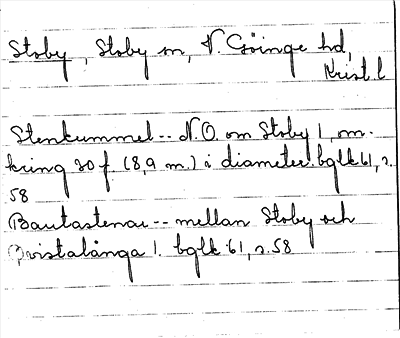 Stoby, Stoby sn, V. Göinge hd,
Krist. l
Stenkummel -- N.O. om Stoby 1, om-
kring 30 f. (8,9 m.) i diameter. bglk 61, s.
58
Bautastenar -- mellan Stoby och
Qvistalånga 1. bglk 61, s. 58